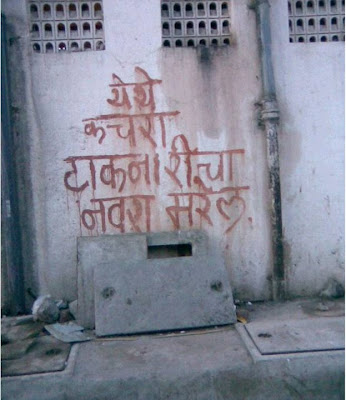 येथे
कचरा
टाकनारीचा
नवरा मरेल.